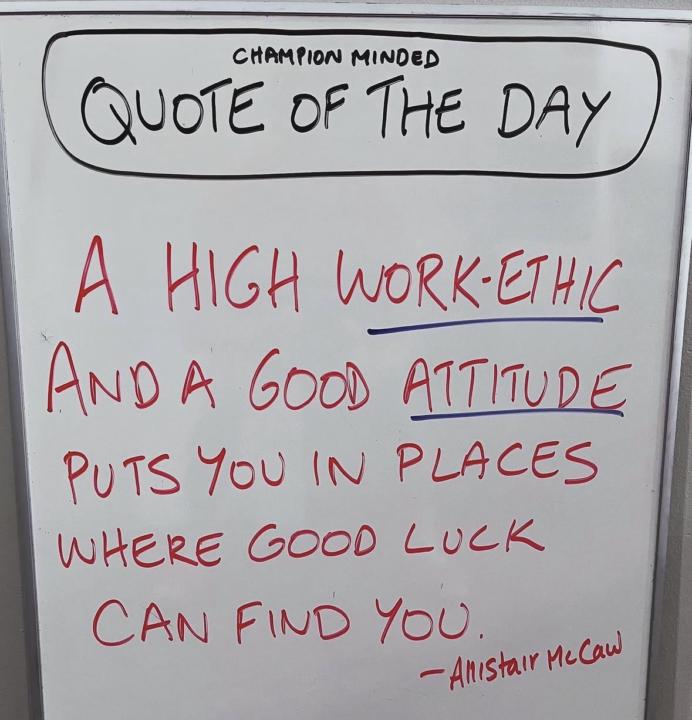 CHAMPION MINDED
QUOTE OF THE DAY
A HIGH WORK-ETHIC
AND A GOOD ATTITUDE
PUTS YOU IN PLACES
WHERE GOOD LUCK
CAN FIND YOU.
- Allistair McCaw